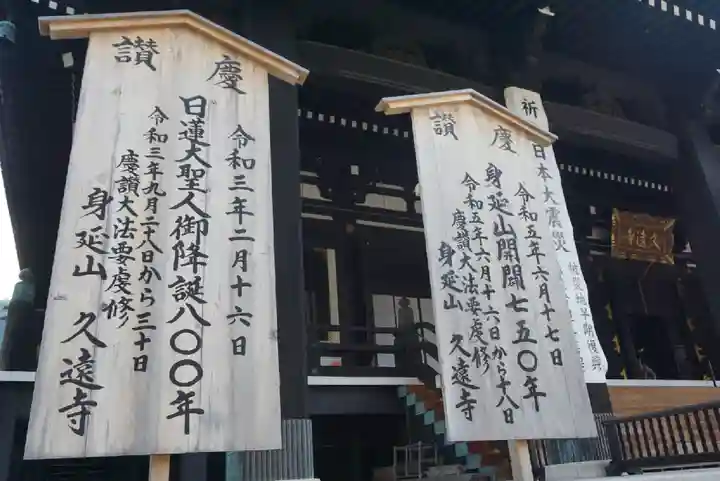 慶讃
令和三年二月十六日
日蓮大聖人御降誕八〇〇年
令和三年九月二八日から三十日
慶讃大法要虔修
身延山 久遠寺
慶讃
令和五年六月十七日
身延山開闢七五〇年
令和五年六月十六日から十八日
慶讃大法要虔修
身延山 久遠寺
祈
日本大震災
被災地早期復興
久遠寺